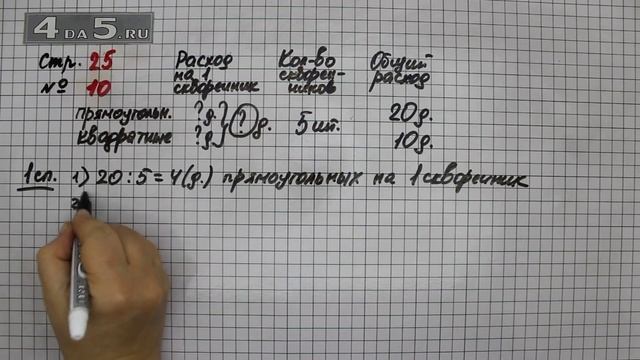 4 DA 5.RU
Стр. 25 Расход Кол-во Общий
№ 10 на 1 скворечник скворечников расход
прямоугольн. ? д. } ? д. 5 шт. 20 д.
квадратные ? д. 10 д.
1 сп. 1) 20 : 5 = 4 (д.) прямоугольных на 1 скворечник
2